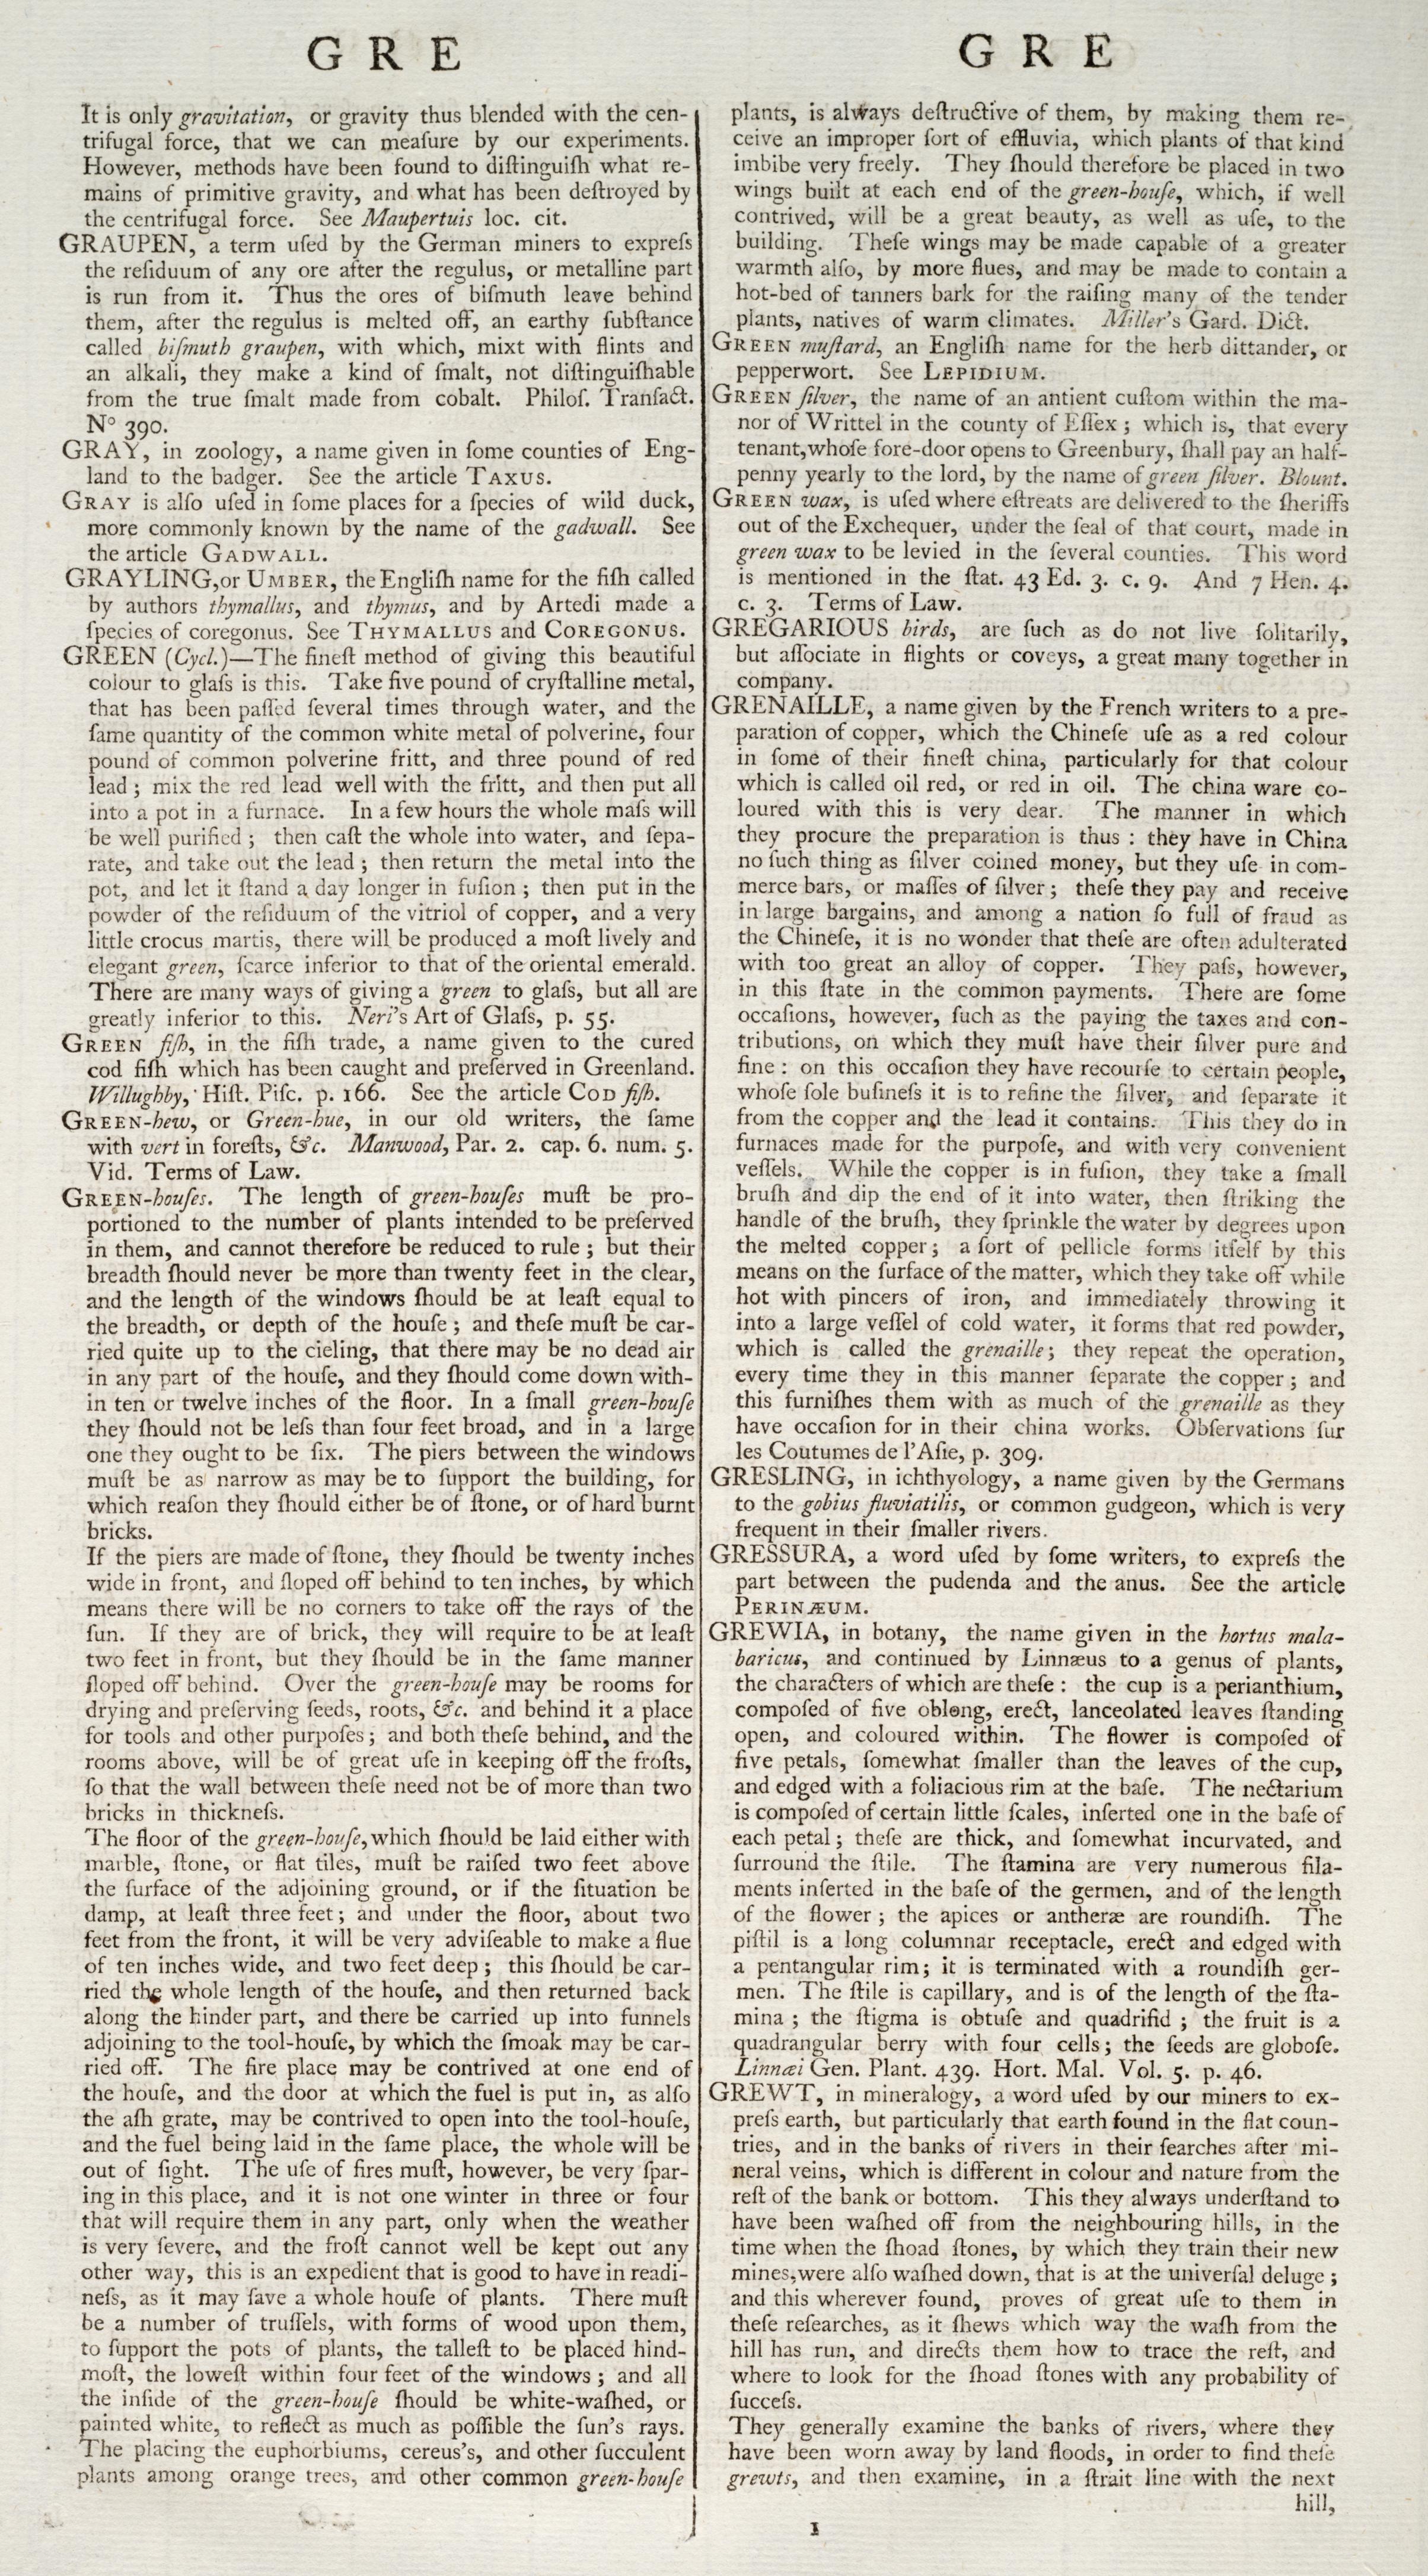 G R E
It is only gravitation, or gravity thus blended with the cen-
trifugal force, that we can meaſure by our experiments.
However, methods have been found to diſtinguiſh what re-
mains of primitive gravity, and what has been deſtroyed by
the centrifugal force. See Maupertuis loc. cit.
GRAUPEN, a term uſed by the German miners to expreſs
the reſiduum of any ore after the regulus, or metalline part
is run from it. Thus the ores of biſmuth leave behind
them, after the regulus is melted off, an earthy ſubſtance
called biſmuth graupen, with which, mixt with flints and
an alkali, they make a kind of ſmalt, not diſtinguiſhable
from the true ſmalt made from cobalt. Philoſ. Tranſact.
Nº 390.
GRAY, in zoology, a name given in ſome counties of Eng-
land to the badger. See the article TAXUS.
GRAY is alſo uſed in ſome places for a ſpecies of wild duck,
more commonly known by the name of the gadwall. See
the article GADWALL.
GRAYLING, or UMBER, the Engliſh name for the fiſh called
by authors thymallus, and thymus, and by Artedi made a
ſpecies of coregonus. See THYMALLUS and COREGONUS.
GREEN (Cycl.)—The fineſt method of giving this beautiful
colour to glaſs is this. Take five pound of cryſtalline metal,
that has been paſſed ſeveral times through water, and the
ſame quantity of the common white metal of polverine, four
pound of common polverine fritt, and three pound of red
lead; mix the red lead well with the fritt, and then put all
into a pot in a furnace. In a few hours the whole maſs will
be well purified; then caſt the whole into water, and ſepa-
rate, and take out the lead; then return the metal into the
pot, and let it ſtand a day longer in fuſion; then put in the
powder of the reſiduum of the vitriol of copper, and a very
little crocus martis, there will be produced a moſt lively and
elegant green, ſcarce inferior to that of the oriental emerald.
There are many ways of giving a green to glaſs, but all are
greatly inferior to this. Neri's Art of Glaſs, p. 55.
GREEN fiſh, in the fiſh trade, a name given to the cured
cod fiſh which has been caught and preſerved in Greenland.
Willughby, Hiſt. Piſc. p. 166. See the article COD fiſh.
GREEN-hew, or Green-hue, in our old writers, the ſame
with vert in foreſts, &c. Manwood, Par. 2. cap. 6. num. 5.
Vid. Terms of Law.
GREEN-houſes. The length of green-houſes muſt be pro-
portioned to the number of plants intended to be preſerved
in them, and cannot therefore be reduced to rule; but their
breadth ſhould never be more than twenty feet in the clear,
and the length of the windows ſhould be at leaſt equal to
the breadth, or depth of the houſe; and theſe muſt be car-
ried quite up to the cieling, that there may be no dead air
in any part of the houſe, and they ſhould come down with-
in ten or twelve inches of the floor. In a ſmall green-houſe
they ſhould not be leſs than four feet broad, and in a large
one they ought to be ſix. The piers between the windows
muſt be as narrow as may be to ſupport the building, for
which reaſon they ſhould either be of ſtone, or of hard burnt
bricks.
If the piers are made of ſtone, they ſhould be twenty inches
wide in front, and ſloped off behind to ten inches, by which
means there will be no corners to take off the rays of the
ſun. If they are of brick, they will require to be at leaſt
two feet in front, but they ſhould be in the ſame manner
ſloped off behind. Over the green-houſe may be rooms for
drying and preſerving ſeeds, roots, &c. and behind it a place
for tools and other purpoſes; and both theſe behind, and the
rooms above, will be of great uſe in keeping off the froſts,
ſo that the wall between theſe need not be of more than two
bricks in thickneſs.
The floor of the green-houſe, which ſhould be laid either with
marble, ſtone, or flat tiles, muſt be raiſed two feet above
the ſurface of the adjoining ground, or if the ſituation be
damp, at leaſt three feet; and under the floor, about two
feet from the front, it will be very adviſeable to make a flue
of ten inches wide, and two feet deep; this ſhould be car-
ried the whole length of the houſe, and then returned back
along the hinder part, and there be carried up into funnels
adjoining to the tool-houſe, by which the ſmoak may be car-
ried off. The fire place may be contrived at one end of
the houſe, and the door at which the fuel is put in, as alſo
the aſh grate, may be contrived to open into the tool-houſe,
and the fuel being laid in the ſame place, the whole will be
out of ſight. The uſe of fires muſt, however, be very ſpar-
ing in this place, and it is not one winter in three or four
that will require them in any part, only when the weather
is very ſevere, and the froſt cannot well be kept out any
other way, this is an expedient that is good to have in readi-
neſs, as it may ſave a whole houſe of plants. There muſt
be a number of truſſels, with forms of wood upon them,
to ſupport the pots of plants, the talleſt to be placed hind-
moſt, the loweſt within four feet of the windows; and all
the inſide of the green-houſe ſhould be white-waſhed, or
painted white, to reflect as much as poſſible the ſun's rays.
The placing the euphorbiums, cereus's, and other ſucculent
plants among orange trees, and other common green-houſe
G R E
plants, is always deſtructive of them, by making them re-
ceive an improper ſort of effluvia, which plants of that kind
imbibe very freely. They ſhould therefore be placed in two
wings built at each end of the green-houſe, which, if well
contrived, will be a great beauty, as well as uſe, to the
building. Theſe wings may be made capable of a greater
warmth alſo, by more flues, and may be made to contain a
hot-bed of tanners bark for the raiſing many of the tender
plants, natives of warm climates. Miller's Gard. Dict.
GREEN muſtard, an Engliſh name for the herb dittander, or
pepperwort. See LEPIDIUM.
GREEN ſilver, the name of an antient cuſtom within the ma-
nor of Writtel in the county of Eſſex; which is, that every
tenant, whoſe fore-door opens to Greenbury, ſhall pay an half-
penny yearly to the lord, by the name of green ſilver. Blount.
GREEN wax, is uſed where eſtreats are delivered to the ſheriffs
out of the Exchequer, under the ſeal of that court, made in
green wax to be levied in the ſeveral counties. This word
is mentioned in the ſtat. 43 Ed. 3. c. 9. And 7 Hen. 4.
c. 3. Terms of Law.
GREGARIOUS birds, are ſuch as do not live ſolitarily,
but aſſociate in flights or coveys, a great many together in
company.
GRENAILLE, a name given by the French writers to a pre-
paration of copper, which the Chineſe uſe as a red colour
in ſome of their fineſt china, particularly for that colour
which is called oil red, or red in oil. The china ware co-
loured with this is very dear. The manner in which
they procure the preparation is thus: they have in China
no ſuch thing as ſilver coined money, but they uſe in com-
merce bars, or maſſes of ſilver; theſe they pay and receive
in large bargains, and among a nation ſo full of fraud as
the Chineſe, it is no wonder that theſe are often adulterated
with too great an alloy of copper. They paſs, however,
in this ſtate in the common payments. There are ſome
occaſions, however, ſuch as the paying the taxes and con-
tributions, on which they muſt have their ſilver pure and
fine: on this occaſion they have recourſe to certain people,
whoſe ſole buſineſs it is to refine the ſilver, and ſeparate it
from the copper and the lead it contains. This they do in
furnaces made for the purpoſe, and with very convenient
veſſels. While the copper is in fuſion, they take a ſmall
bruſh and dip the end of it into water, then ſtriking the
handle of the bruſh, they ſprinkle the water by degrees upon
the melted copper; a ſort of pellicle forms itſelf by this
means on the ſurface of the matter, which they take off while
hot with pincers of iron, and immediately throwing it
into a large veſſel of cold water, it forms that red powder,
which is called the grenaille; they repeat the operation,
every time they in this manner ſeparate the copper; and
this furniſhes them with as much of the grenaille as they
have occaſion for in their china works. Obſervations ſur
les Coutumes de l'Aſie, p. 309.
GRESLING, in ichthyology, a name given by the Germans
to the gobius fluviatilis, or common gudgeon, which is very
frequent in their ſmaller rivers.
GRESSURA, a word uſed by ſome writers, to expreſs the
part between the pudenda and the anus. See the article
PERINÆUM.
GREWIA, in botany, the name given in the hortus mala-
baricus, and continued by Linnæus to a genus of plants,
the characters of which are theſe: the cup is a perianthium,
compoſed of five oblong, erect, lanceolated leaves ſtanding
open, and coloured within. The flower is compoſed of
five petals, ſomewhat ſmaller than the leaves of the cup,
and edged with a foliacious rim at the baſe. The nectarium
is compoſed of certain little ſcales, inſerted one in the baſe of
each petal; theſe are thick, and ſomewhat incurvated, and
ſurround the ſtile. The ſtamina are very numerous fila-
ments inſerted in the baſe of the germen, and of the length
of the flower; the apices or antheræ are roundiſh. The
piſtil is a long columnar receptacle, erect and edged with
a pentangular rim; it is terminated with a roundiſh ger-
men. The ſtile is capillary, and is of the length of the ſta-
mina; the ſtigma is obtuſe and quadrifid; the fruit is a
quadrangular berry with four cells; the ſeeds are globoſe.
Linnæi Gen. Plant. 439. Hort. Mal. Vol. 5. p. 46.
GREWT, in mineralogy, a word uſed by our miners to ex-
preſs earth, but particularly that earth found in the flat coun-
tries, and in the banks of rivers in their ſearches after mi-
neral veins, which is different in colour and nature from the
reſt of the bank or bottom. This they always underſtand to
have been waſhed off from the neighbouring hills, in the
time when the ſhoad ſtones, by which they train their new
mines, were alſo waſhed down, that is at the univerſal deluge;
and this wherever found, proves of great uſe to them in
theſe reſearches, as it ſhews which way the waſh from the
hill has run, and directs them how to trace the reſt, and
where to look for the ſhoad ſtones with any probability of
ſucceſs.
They generally examine the banks of rivers, where they
have been worn away by land floods, in order to find theſe
grewts, and then examine, in a ſtrait line with the next
hill,
1